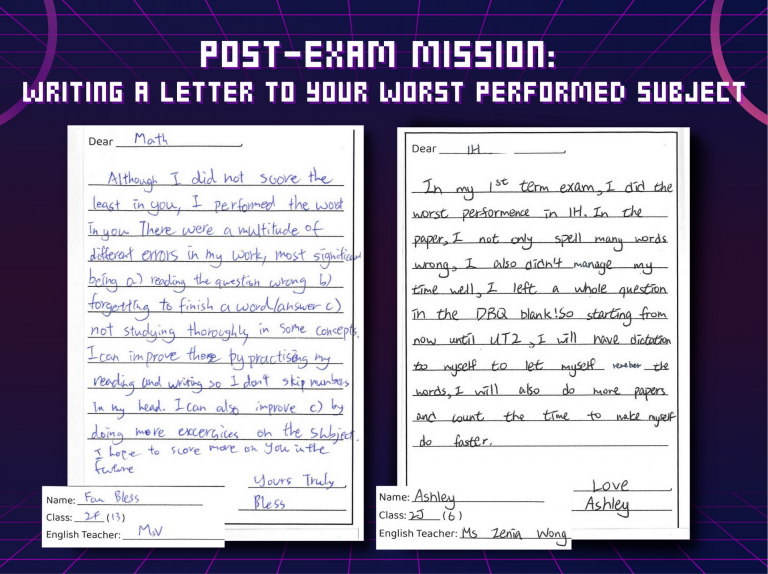 POST-EXAM MISSION:
WRITING A LETTER TO YOUR WORST PERFORMED SUBJECT
Dear Math,
Although I did not score the
least in you, I performed the worst
in you. There were a multitude of
different errors in my work, most significan
being a) reading the question wrong b)
forgetting to finish a word/answer c)
not studying thoroughly in some concepts.
I can improve those by practising my
reading and writing so I don't skip numbers
in my head. I can also improve c) by
doing more excercices on the subject.
I hope to score more on you in the
future
Yours Truly
Bless
Name: Fan Bless
Class: 2F (13)
English Teacher: MsV
Dear IH,
In my 1st term exam, I did the
worst performence in IH. In the
paper, I not only spell many words
wrong, I also didn't manage my
time well, I left a whole question
in the DBQ blank! So starting from
now until UT2, I will have dictation
to myself to let myself remeber the
words, I will also do more papers
and count the time to make myself
do faster.
Love
Ashley
Name: Ashley
Class: 2J (6)
English Teacher: Ms Zenia Wong